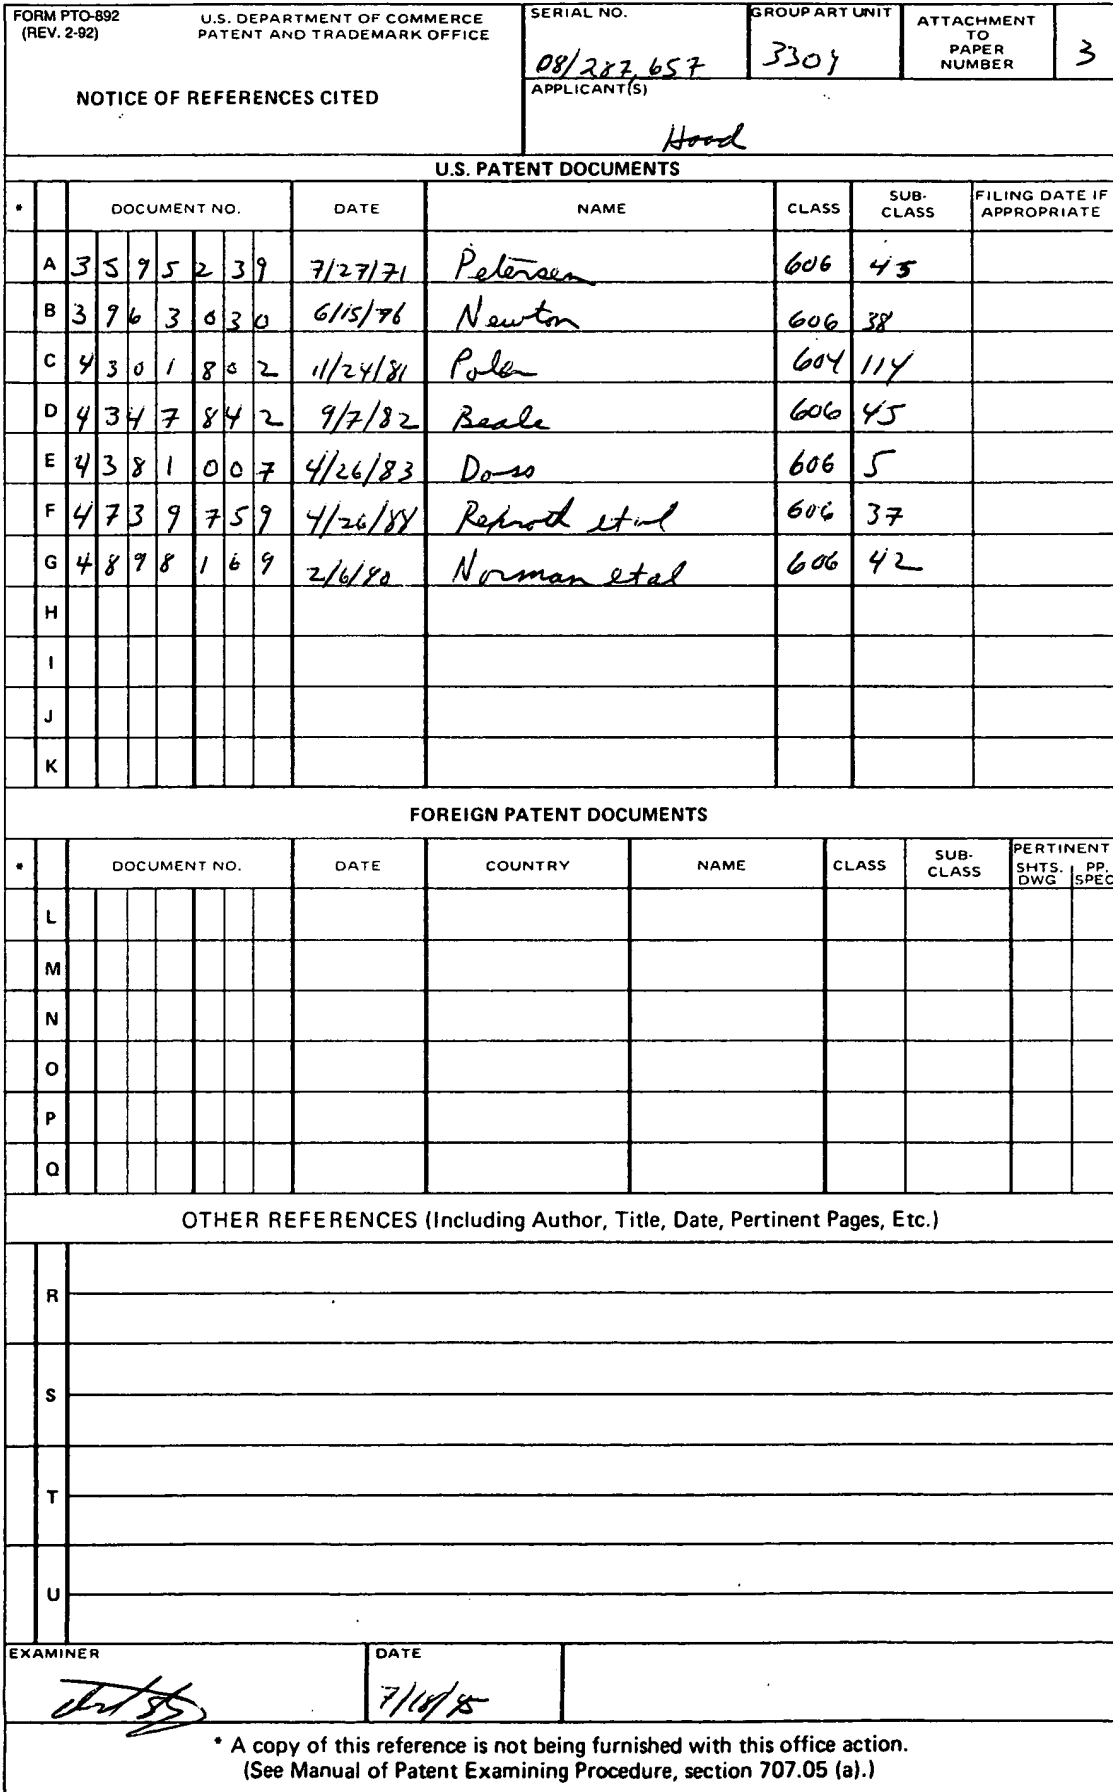 FORM PTO-892
(REV. 2-92)
U.S. DEPARTMENT OF COMMERCE
PATENT AND TRADEMARK OFFICE
NOTICE OF REFERENCES CITED
SERIAL NO.
08/287,657
GROUP ART UNIT
3304
ATTACHMENT
TO
PAPER
NUMBER
3
APPLICANT(S)
Hood
U.S. PATENT DOCUMENTS
* DOCUMENT NO. DATE NAME CLASS SUB-CLASS FILING DATE IF APPROPRIATE
A 3595239 7/27/71 Petersen 606 45
B 3963030 6/15/76 Newton 606 38
C 4301802 11/24/81 Poler 604 114
D 4347842 9/7/82 Beale 606 45
E 4381007 4/26/83 Doss 606 5
F 4739759 4/26/88 Rexroth et al 606 37
G 4898169 2/6/90 Norman et al 606 42
H
I
J
K
FOREIGN PATENT DOCUMENTS
* DOCUMENT NO. DATE COUNTRY NAME CLASS SUB-CLASS PERTINENT SHTS. DWG PP. SPEC
L
M
N
O
P
Q
OTHER REFERENCES (Including Author, Title, Date, Pertinent Pages, Etc.)
R
S
T
U
EXAMINER
DATE
7/18/95
* A copy of this reference is not being furnished with this office action.
(See Manual of Patent Examining Procedure, section 707.05 (a).)